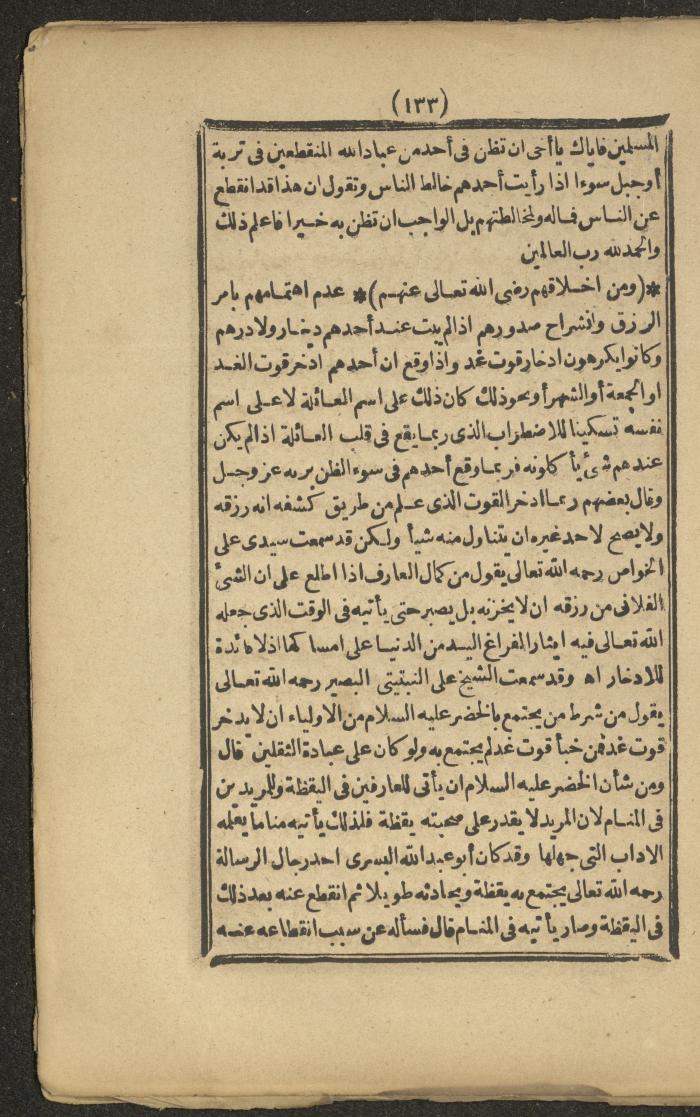 (١٣٣)
المسلمين فاياك ياأخى ان تظن فى أحد من عباد الله المنقطعين فى تربة
أوجبل سوءا اذا رأيت أحدهم خالط الناس وتقول ان هذا قد انقطع
عن الناس فماله ولمخالطتهم بل الواجب ان تظن به خيرا فاعلم ذلك
والحمد لله رب العالمين
*(ومن اخلاقهم رضى الله تعالى عنهم)* عدم اهتمامهم بامر
الرزق وانشراح صدورهم اذا لم يبت عند أحدهم دينار ولا درهم
وكانوا يكرهون ادخار قوت غد واذا وقع ان أحدهم ادخر قوت الغد
او الجمعة أو الشهر أو نحو ذلك كان ذلك على اسم العائلة لا على اسم
نفسه تسكينا للاضطراب الذى ربما يقع فى قلب العائلة اذا لم يكن
عندهم شئ يأكلونه فربما وقع أحدهم فى سوء الظن بربه عز وجل
وقال بعضهم ربما ادخر القوت الذى علم من طريق كشفه انه رزقه
ولا يصح لاحد غيره ان يتناول منه شيأ ولكن قد سمعت سيدى على
الخواص رحمه الله تعالى يقول من كمال العارف اذا اطلع على ان الشئ
الفلانى من رزقه ان لا يخزنه بل يصبر حتى يأتيه فى الوقت الذى جعله
الله تعالى فيه ايثارا لفراغ اليد من الدنيا على امساكها اذ لا فائدة
للادخار اه وقد سمعت الشيخ على النبتيتى البصير رحمه الله تعالى
يقول من شرط من يجتمع بالخضر عليه السلام من الاولياء ان لا يدخر
قوت غد فمن خبأ قوت غد لم يجتمع به ولو كان على عبادة الثقلين قال
ومن شأن الخضر عليه السلام ان يأتى للعارفين فى اليقظة وللمريدين
فى المنام لان المريد لا يقدر على صحبته يقظة فلذلك يأتيه مناما يعلمه
الاداب التى جهلها وقد كان أبو عبد الله البسرى احد رجال الرسالة
رحمه الله تعالى يجتمع به يقظة ويحادثه طويلا ثم انقطع عنه بعد ذلك
فى اليقظة وصار يأتيه فى المنام قال فسأله عن سبب انقطاعه عنه